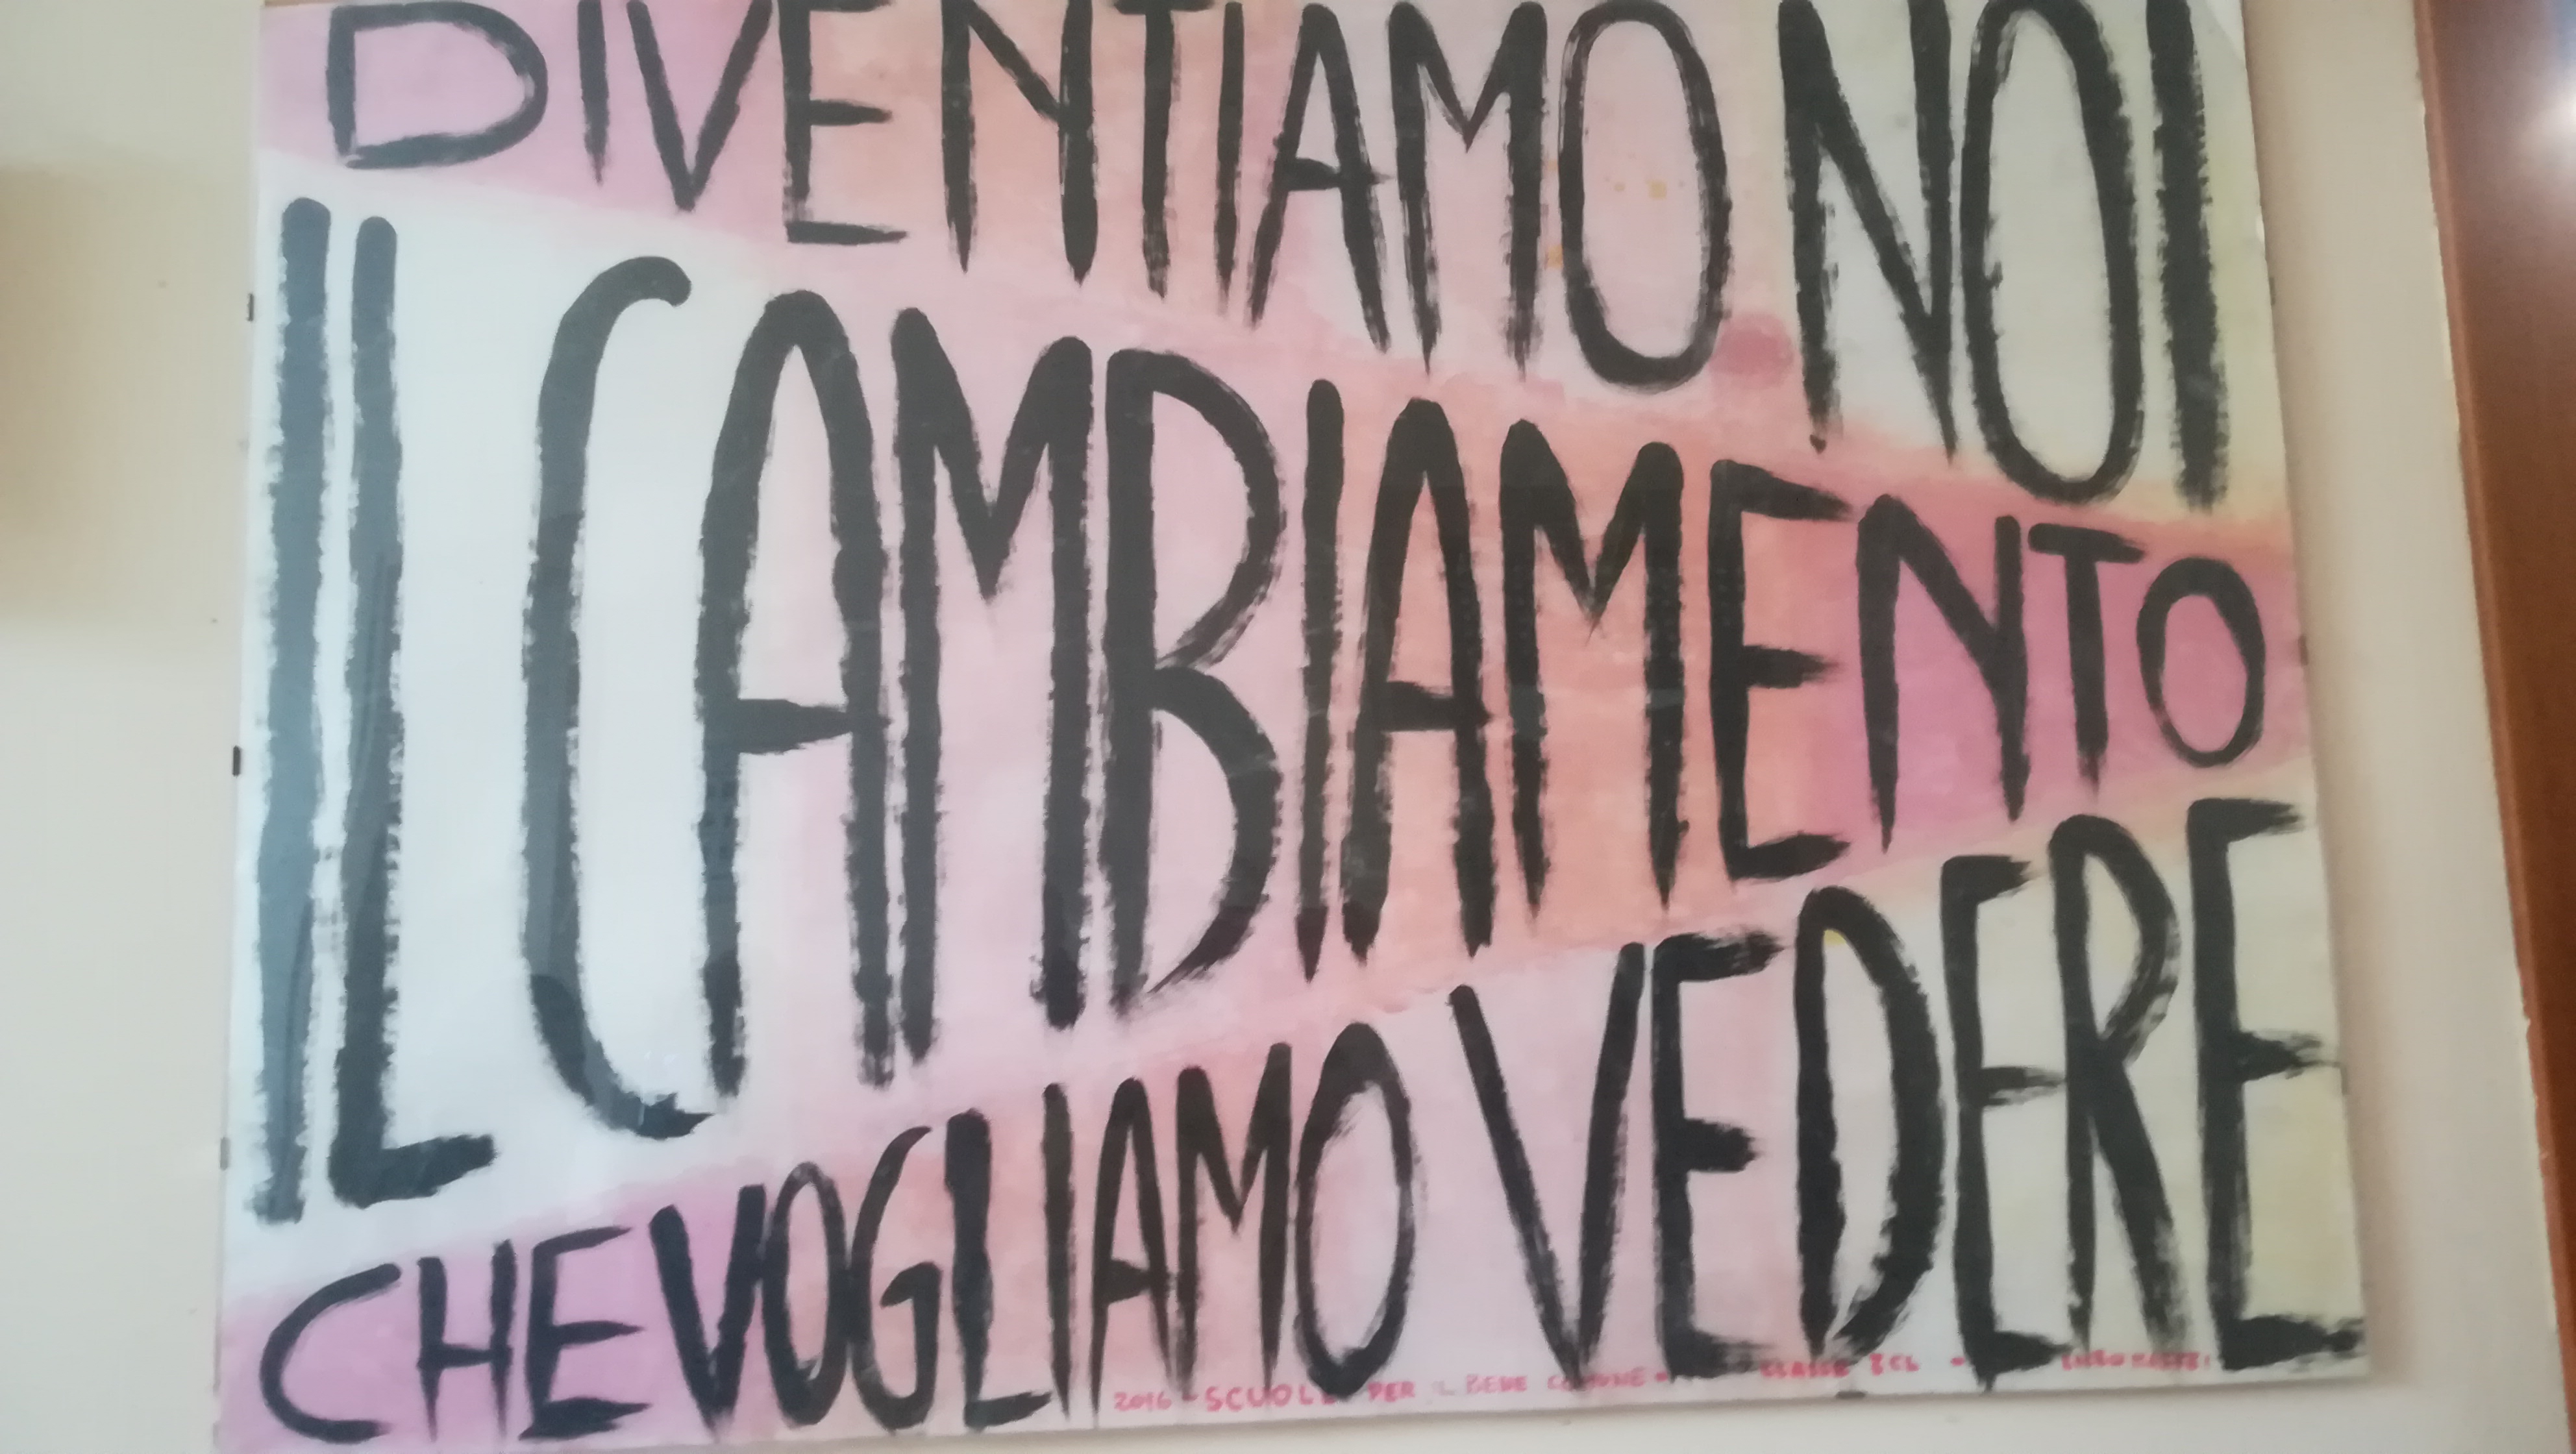 DIVENTIAMO NOI
IL CAMBIAMENTO
CHE VOGLIAMO VEDERE
2016 - SCUOLE PER IL BENE COMUNE • CLASSE